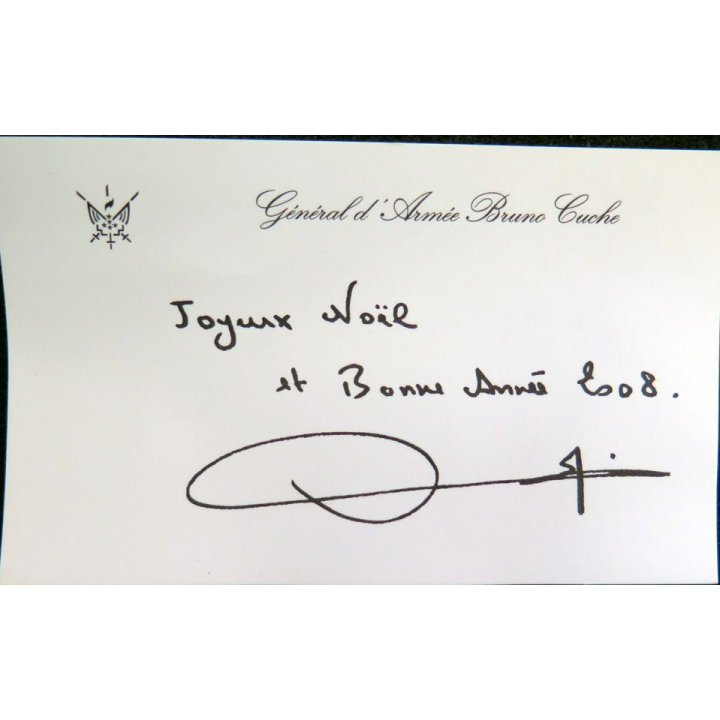 Général d'Armée Bruno Cuche
Joyeux Noël
et Bonne Année 2008.